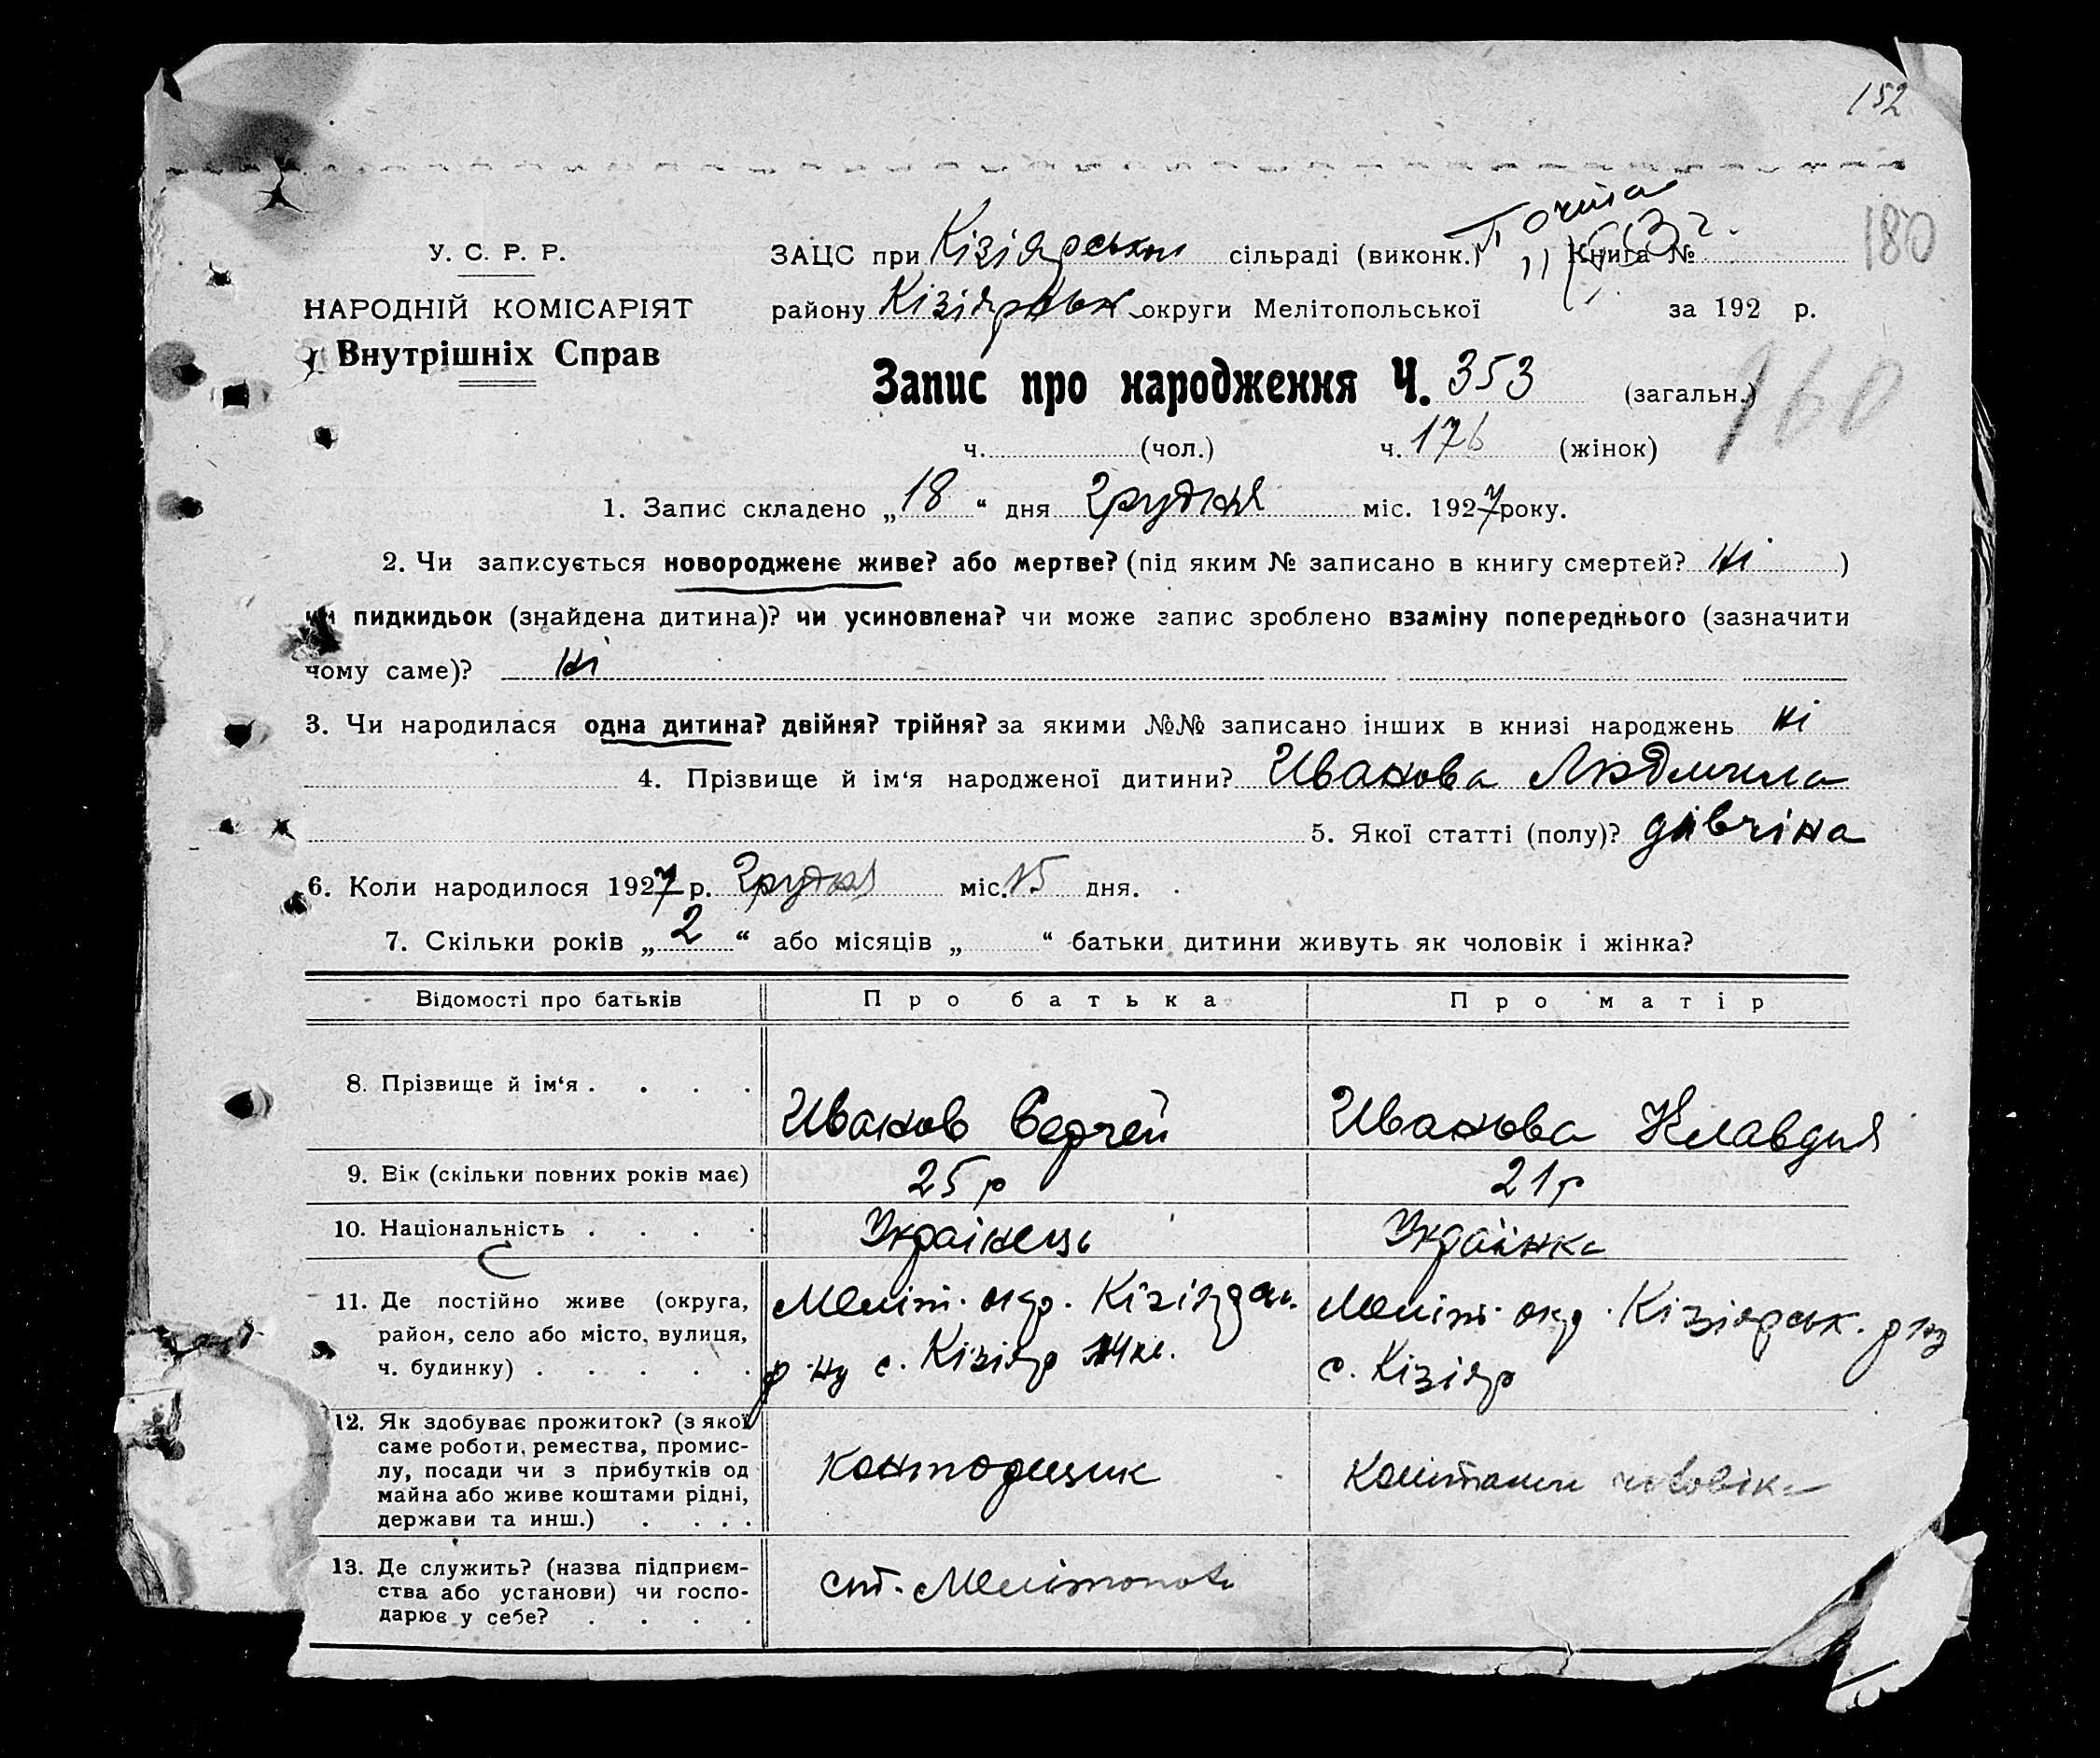 152
180
У. С. Р. Р.
ЗАЦС при Кізіярськи сільраді (виконк.) Книга №
НАРОДНІЙ КОМІСАРІЯТ
району Кізіярськ округи Мелітопольської за 192 р.
Внутрішніх Справ
160
Запис про народження Ч. 353 (загальн.)
ч. (чол.) ч. 176 (жінок)
1. Запис складено „18“ дня Грудня міс. 1927 року.
2. Чи записується новороджене живе? або мертве? (під яким № записано в книгу смертей? ні )
чи пидкидьок (знайдена дитина)? чи усиновлена? чи може запис зроблено взаміну попереднього (зазначити
чому саме)? ні
3. Чи народилася одна дитина? двійня? трійня? за якими №№ записано інших в книзі народжень ні
4. Прізвище й ім‘я народженої дитини? Иванова Людмила
5. Якої статті (полу)? дівчіна
6. Коли народилося 1927 р. Грудня міс. 15 дня.
7. Скільки років „2“ або місяців „ “ батьки дитини живуть як чоловік і жінка?
Відомості про батьків Про батька Про матір
8. Прізвище й ім‘я . . . . Иванов Сергей Иванова Клавдия
9. Вік (скільки повних років має) 25 р 21 р
10. Національність . . . . Українець Українка
11. Де постійно живе (округа, Меліт. окр. Кізіярськ. Меліт. окр. Кізіярськ. р-ну
район, село або місто, вулиця, р-ну с. Кізіяр с. Кізіяр
ч. будинку) . . . . .
12. Як здобуває прожиток? (з якої
саме роботи, ремества, промис-
лу, посади чи з прибутків од конторщик коштами чоловіка
майна або живе коштами рідні,
держави та инш.) . . . .
13. Де служить? (назва підприєм-
ства або установи) чи госпо- ст. Мелітополь
дарює у себе? . . . .